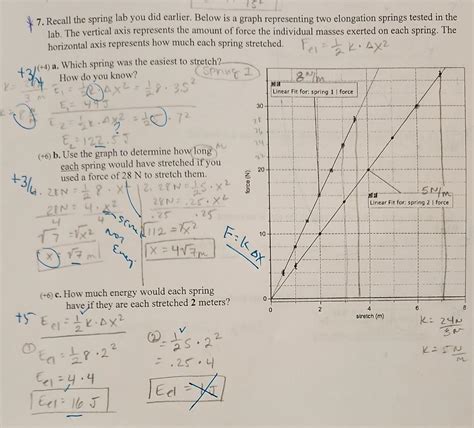 7. Recall the spring lab you did earlier. Below is a graph representing two elongation springs tested in the
lab. The vertical axis represents the amount of force the individual masses exerted on each spring. The
horizontal axis represents how much each spring stretched.
Fel = 1/2 K·Δx²
(+4) a. Which spring was the easiest to stretch?
How do you know?
Spring 2
+3/4
E₁ = 1/2 K·Δx² = 1/2 8·3.5²
E₁ = 49 J
E₂ = 1/2 K·Δx² = 1/2 5·7²
E₂ = 122.5 J
?
(+6) b. Use the graph to determine how long
each spring would have stretched if you
used a force of 28 N to stretch them.
+3/6
28N = 1/2 8·x²
28N = 4·x²
4 4
√7 = √x²
x = √7 m
2. 28N = 1/2 5·x²
28N = .25·x²
.25 .25
√112 = √x²
x = 4√7 m
F = K Δx
(+6) c. How much energy would each spring
have if they are each stretched 2 meters?
+5
Eel = 1/2 K·Δx²
① Eel = 1/2 8·2²
Eel = 4·4
Eel = 16 J
② = 1/2 5·2²
= .25·4
Eel = 1 J
8 N/m
Linear Fit for: spring 1 | force
5 N/m
Linear Fit for: spring 2 | force
force (N)
30
20
10
0
0 2 4 6 8
stretch (m)
K = 24N/3N
K = 5 N/m